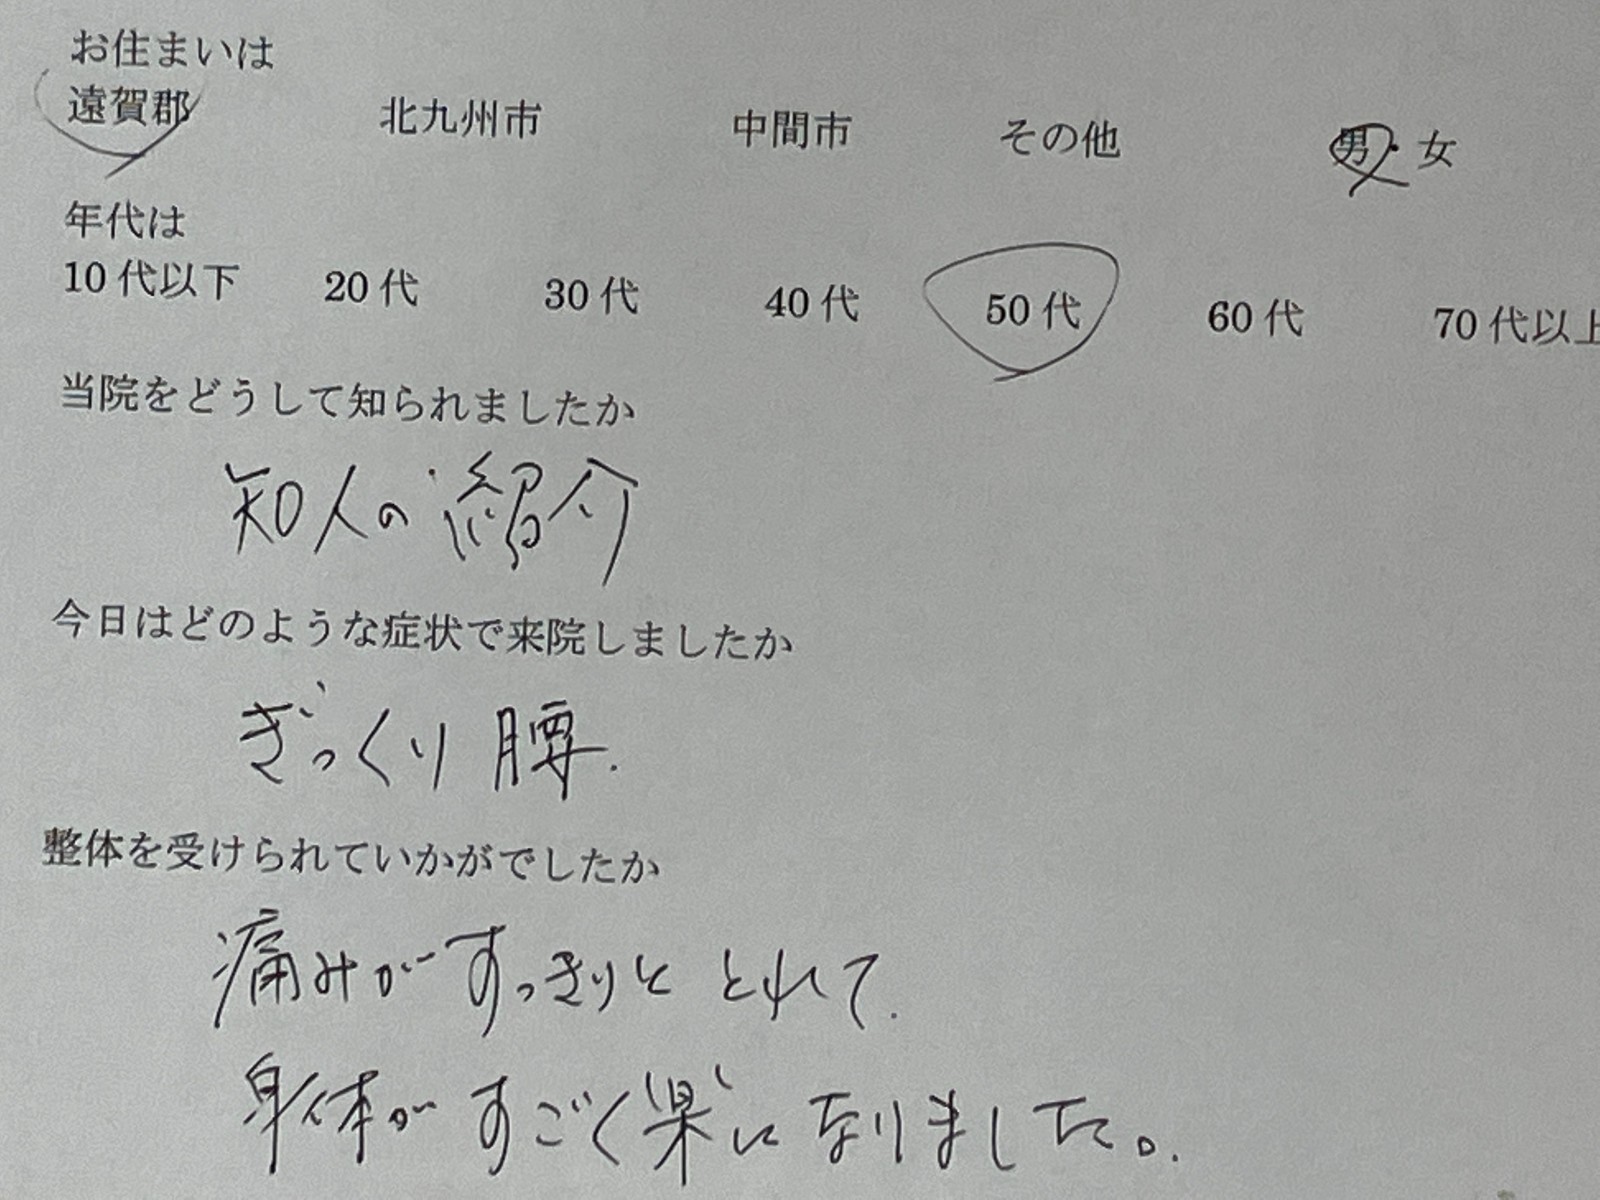 お住まいは
遠賀郡 北九州市 中間市 その他 男・女
年代は
10代以下 20代 30代 40代 50代 60代 70代以上
当院をどうして知られましたか
知人の紹介
今日はどのような症状で来院しましたか
ぎっくり腰.
整体を受けられていかがでしたか
痛みがすっきりと とれて.
身体がすごく楽になりました。.